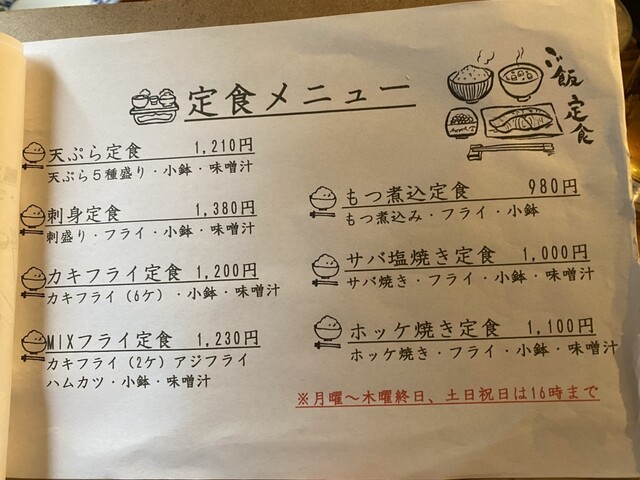 定食メニュー
ご飯
定食
天ぷら定食 1,210円
天ぷら5種盛り・小鉢・味噌汁
刺身定食 1,380円
刺盛り・フライ・小鉢・味噌汁
カキフライ定食 1,200円
カキフライ(6ケ)・小鉢・味噌汁
MIXフライ定食 1,230円
カキフライ(2ケ)アジフライ
ハムカツ・小鉢・味噌汁
もつ煮込定食 980円
もつ煮込み・フライ・小鉢
サバ塩焼き定食 1,000円
サバ焼き・フライ・小鉢・味噌汁
ホッケ焼き定食 1,100円
ホッケ焼き・フライ・小鉢・味噌汁
※月曜~木曜終日、土日祝日は16時まで